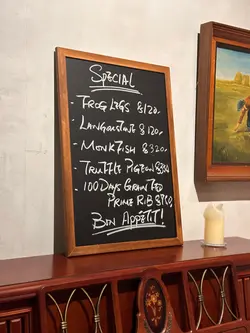 SPECIAL
- FROG LEGS $120.
- LANGOUSTINE $120.
- MONKFISH $320.
- TRUFFLE PIGEON
- 100 DAYS GRAIN FED
PRIME RIB
BON APPÉTIT!